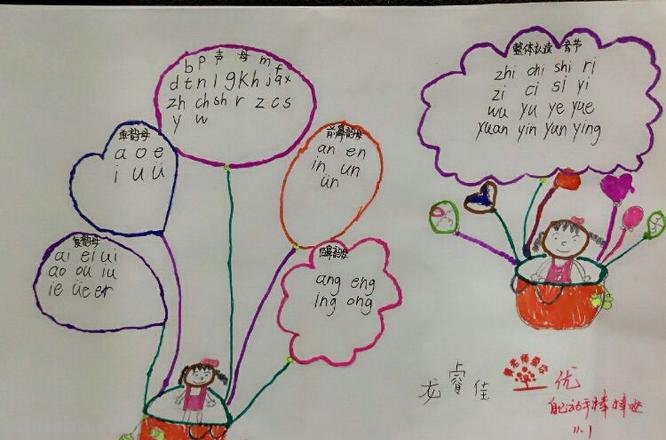 声母
b p m f
d t n l g k h j q x
zh ch sh r z c s
y w
单韵母
a o e
i u ü
前鼻韵母
an en
in un
ün
复韵母
ai ei ui
ao ou iu
ie üe er
后鼻韵母
ang eng
ing ong
整体认读音节
zhi chi shi ri
zi ci si yi
wu yu ye yue
yuan yin yun ying
龙睿佳
优
11.1